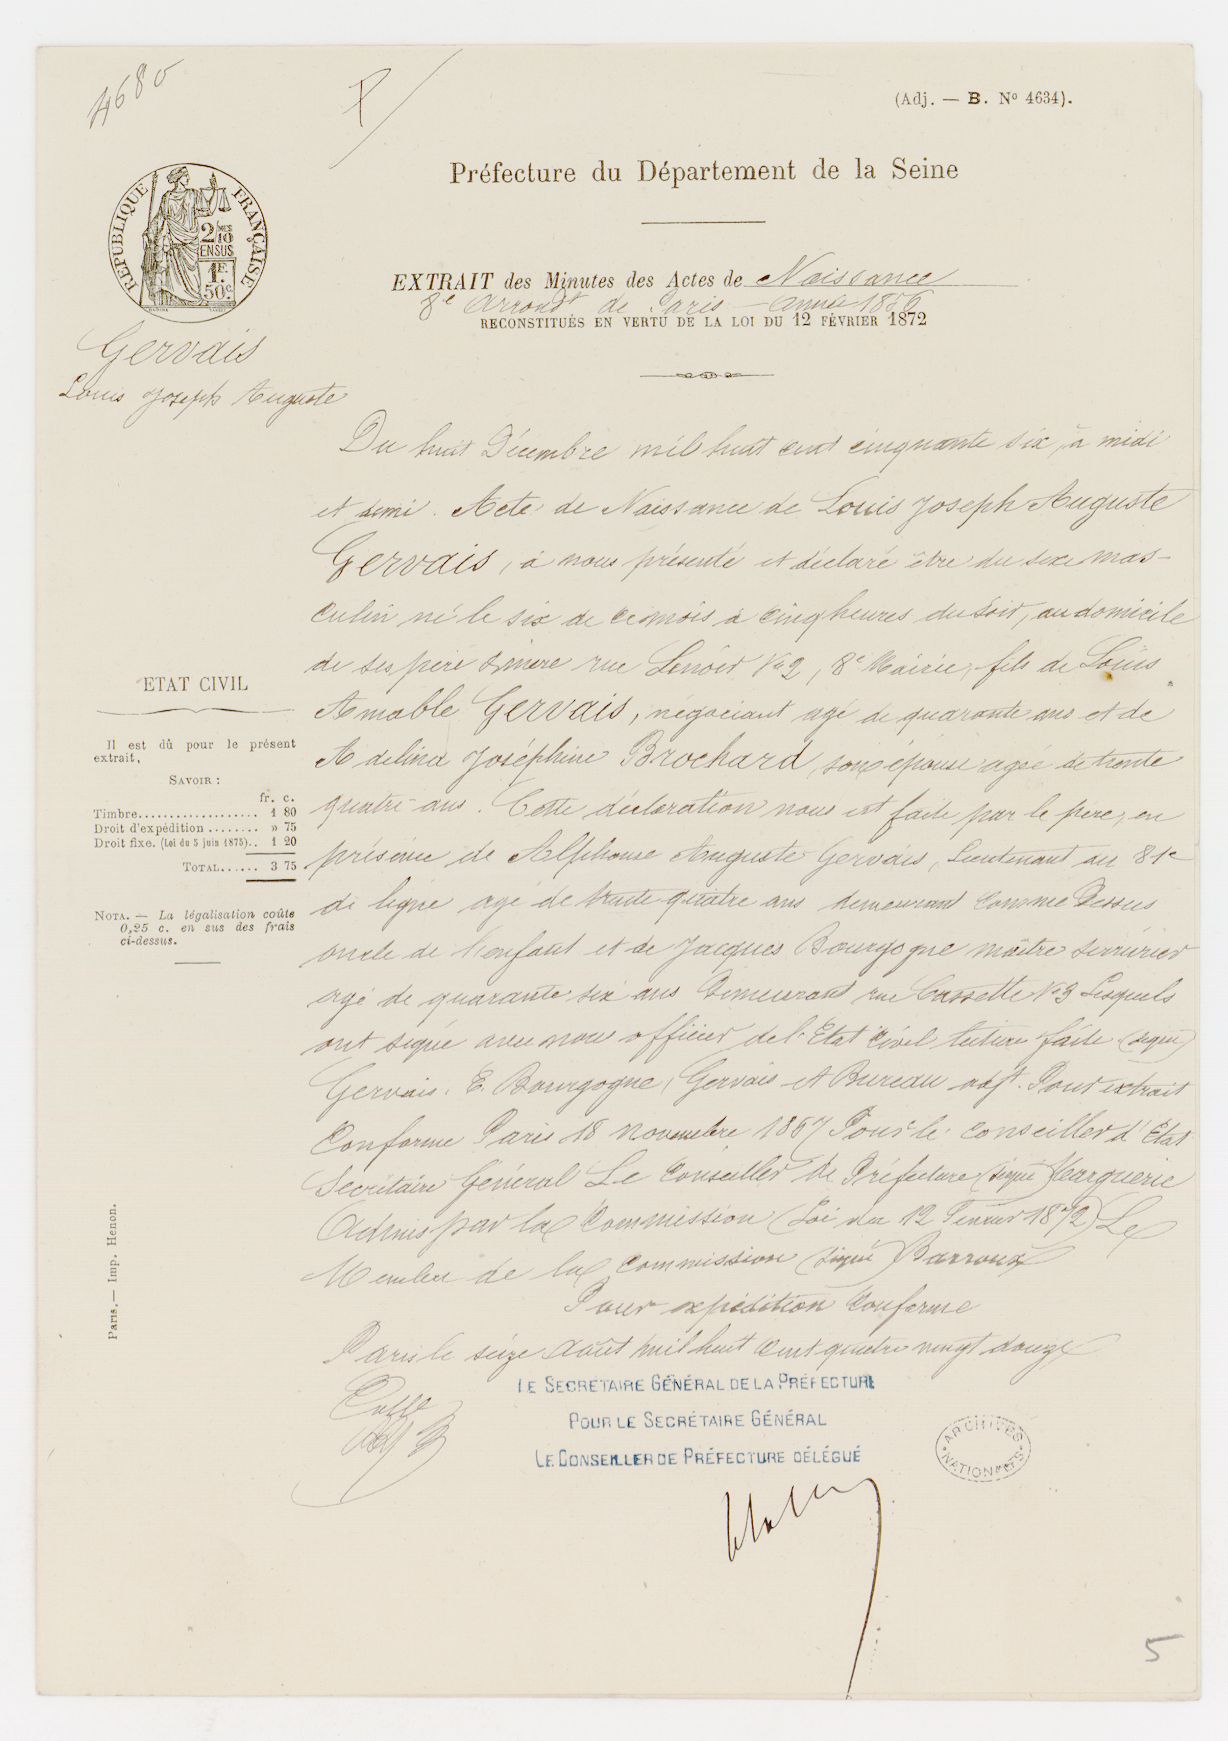 4680
(Adj. — B. Nº 4634).
Préfecture du Département de la Seine
RÉPUBLIQUE FRANÇAISE
2/10 MES
EN SUS
1F.
50c.
EXTRAIT des Minutes des Actes de Naissance
8e Arrondt de Paris — Année 1856
RECONSTITUÉS EN VERTU DE LA LOI DU 12 FÉVRIER 1872
Gervais
Louis Joseph Auguste
Du huit Décembre mil huit cent cinquante six, à midi
et demi. Acte de Naissance de Louis Joseph Auguste
Gervais, à nous présenté et déclaré être du sexe mas-
culin né le six de ce mois à cinq heures du soir, au domicile
de ses père & mère rue Lenoir No 2, 8e Mairie, fils de Louis
Amable Gervais, négociant agé de quarante ans et de
Adelina Joséphine Brochard, son épouse agée de trente
quatre ans. Cette déclaration nous est faite par le père, en
présence de Alphonse Auguste Gervais, Lieutenant au 81e
de ligne agé de trente quatre ans demeurant comme Dessus
oncle de l'enfant et de Jacques Bourgogne maître serrurier
agé de quarante six ans Demeurant rue Cassette No 3 Lesquels
ont signé avec nous officier de l'Etat Civil lecture faite (signé)
Gervais. E. Bourgogne, Gervais et Bureau adjt. Pour extrait
Conforme Paris 18 novembre 1867 Pour le Conseiller d'Etat
Secrétaire Général Le Conseiller de Préfecture (signé) Marguerie
Admis par la Commission (Loi du 12 Février 1872) Le
Membre de la Commission (signé) Barroux
Pour expédition conforme
Paris le seize Août mil huit cent quatre vingt douze
ETAT CIVIL
Il est dû pour le présent
extrait,
SAVOIR :
fr. c.
Timbre.................. 1 80
Droit d'expédition ........ » 75
Droit fixe. (Loi du 5 juin 1875).. 1 20
TOTAL...... 3 75
NOTA. — La légalisation coûte
0,25 c. en sus des frais
ci-dessus.
Paris. — Imp. Henon.
LE SECRÉTAIRE GÉNÉRAL DE LA PRÉFECTURE
POUR LE SECRÉTAIRE GÉNÉRAL
LE CONSEILLER DE PRÉFECTURE DÉLÉGUÉ
ARCHIVES NATIONALES
5